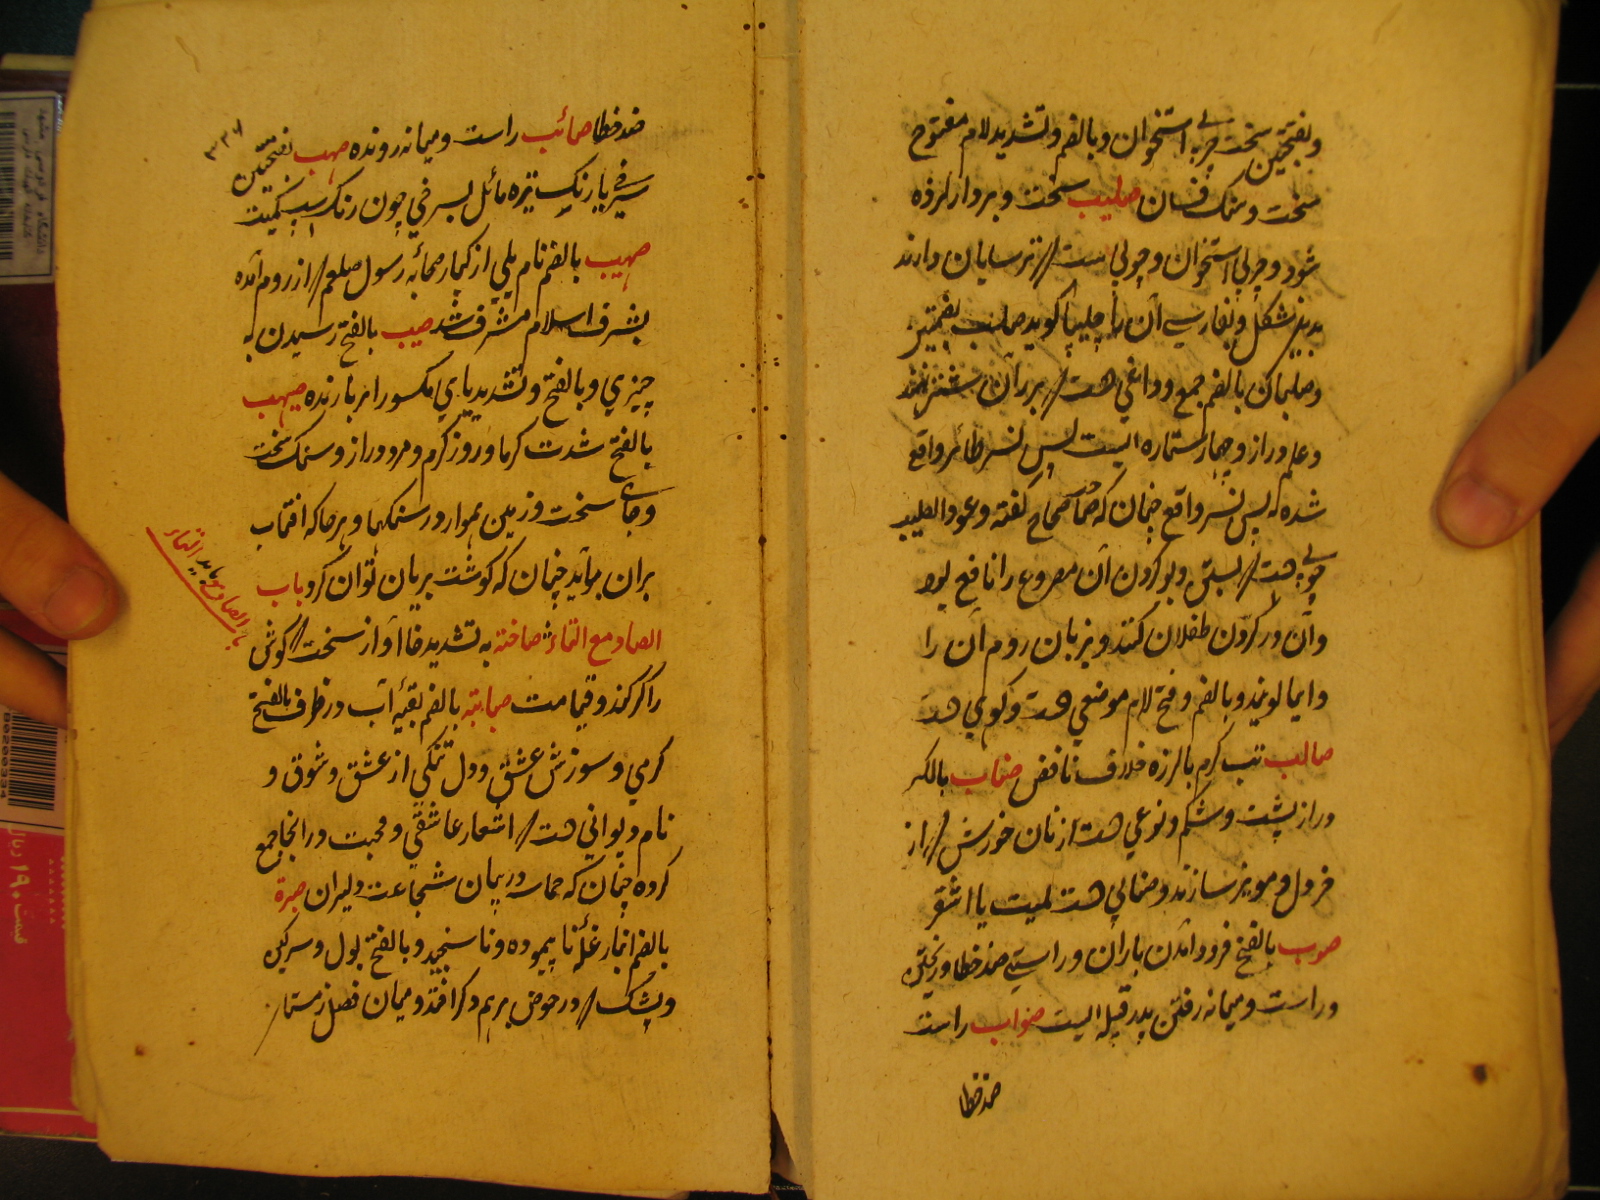 و بفتحتین سخت چربی استخوان و بالضم و تشدید لام مفتوح
سخت و سنک فسان صلیب سخت و بردار کرده
شود و چربی استخوان و چوبی است // ترسایان دارند
بدین شکل و بفارسی آن را چلیپا کوید صلب بضمتین
و صلبان بالضم جمع و داغی هست // بر ران شتر نهند
و علم دراز و چهار ستاره ایست پس نسر طائر واقع
شده که پس نسر واقع چنان که صاحب صحاح کفته و عود الصلیب
چوبی هست // بستن و بو کردن آن مصروع را نافع بود
و آن در کردن طفلان کنند و بزبان روم آن را
و بالضم و فتح لام موضعی هست و کوی هست
صالب تب کرم بالرزه خلاف نافض صناب بالکسر
دراز پشت و شکم و نوعی هست از نان خورش // از
خردل و مویز سازند و صنابی هست کمیت یا اشقر
صوب بالفتح فرود آمدن باران و راستی ضد خطا و ریختن
و راست و میانه رفتن پدر قبیله ایست صواب راست
ضد خطا
۳۳۶
ضد خطا صائب راست و میانه رونده صهب بفتحتین
سرخی یا رنک تیره مائل بسرخی چون رنک اسب کمیت
صهیب بالضم نام یکی از کبار صحابه رسول صلعم // از روم آمده
بشرف اسلام مشرف شد صیب بالفتح رسیدن به
چیزی و بالفتح و تشدید یای مکسور ابر بارنده صیهب
بالفتح شدت کرما و روز کرم و مرد دراز و سنک سخت
و جای سخت و زمین هموار و سنکها و هر جا که افتاب
بران بتابد چنان که کوشت بریان توان کرد باب
الصاد مع التاء صاخته به تشدید خا آواز سخت // کوش
را کر کند و قیامت صبابته بالضم بقیه آب در ظرف بالفتح
کرمی و سوزش عشق و دل تنکی از عشق و شوق و
نام دیوانی هست // اشعار عاشقی و محبت در انجا جمع
کرده چنان که حماسه در بیان شجاعت دلیران صبرة
بالضم انبار غله نا پیموده و نا سنجیده و بالفتح بول و سرکین
و پشک // در حوض بر هم دکر افتد و میان فصل زمستان
باب الصاد مع التاء
قیمت ۱۹۰ ریال